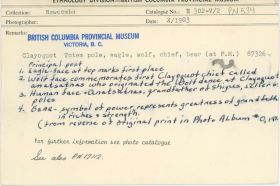 ETHNOLOGY DIVISION—BRITISH COLUMBIA PROVINCIAL MUSEUM
Collection: Newcombe
E 302-V/2 PN 534
Date: 8/1903
Remarks:
BRITISH COLUMBIA PROVINCIAL MUSEUM
VICTORIA, B. C.
Clayoquot Totem pole, eagle, wolf, chief, bear (at F.M.) 87326.
Principal post
1. Eagle-face at top marks first place
2. Wolf face commemorates first Clayoquot chief called
anatsatnas who originated the Wolf dance at Clayoquot
3. Human face = Anatsatnas, grandfather of Shyues, seller of
poles
4. Bear - symbol of power represents greatness of grandfather
in riches + strength.
(From reverse of original print in Photo Album #0,
For further information see photo catalogue
See also PN 1712.